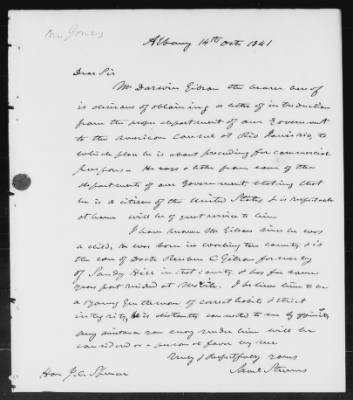 Albany 14th Oct 1841
Dear Sir
Mr Darwin Gibson the bearer hereof
is desirous of obtaining a letter of introduction
from the proper department of our Government
to the American Consul at Rio Janeiro, to
which place he is about proceeding for commercial
purposes. He says a letter from some of the
departments of our Government, stating that
he is a citizen of the United States & is respectable
at home will be of great service to him
I have known Mr Gibson since he was
a child, he was born in Washington County & is
the son of Doctr C Gibson formerly
of Sandy Hill in that county, & has for some
years past resided at I believe him to be
a young Gentleman of correct habits & strict
integrity, He is distantly connected to me by affinity
any assistance you may render him will be
considered as a personal favor by me
Truly & Respectfully yours
Saml Stevens
Hon J. C. Spencer